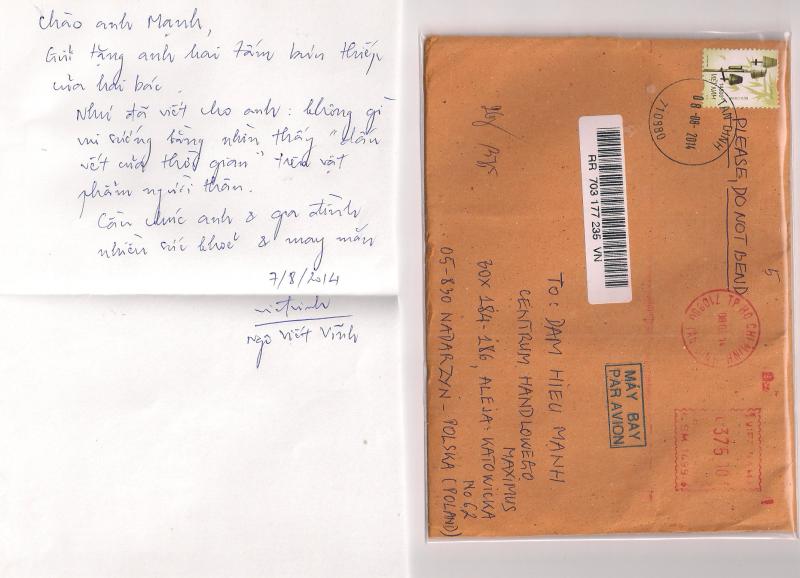 Chào anh Mạnh,
Gửi tặng anh hai tấm bưu thiếp
của hai bác.
Như đã viết cho anh: không gì
vui sướng bằng nhìn thấy "dấu
vết của thời gian" trên vật
phẩm người thân.
Cầu chúc anh & gia đình
nhiều sức khoẻ & may mắn
7/8/2014
Ngô Viết Vĩnh
VIETNAM
TÂN ĐỊNH
08-08-2014
710980
PLEASE, DO NOT BEND
5
RR 703 177 235 VN
To: DAM HIEU MANH
CENTRUM HANDLOWEGO
MAXIMUS
BOX 184-186, ALEJA: KATOWICKA
No 62
05-830 NADARZYN - POLSKA (POLAND)
MÁY BAY
PAR AVION
TP HO CHI MINH